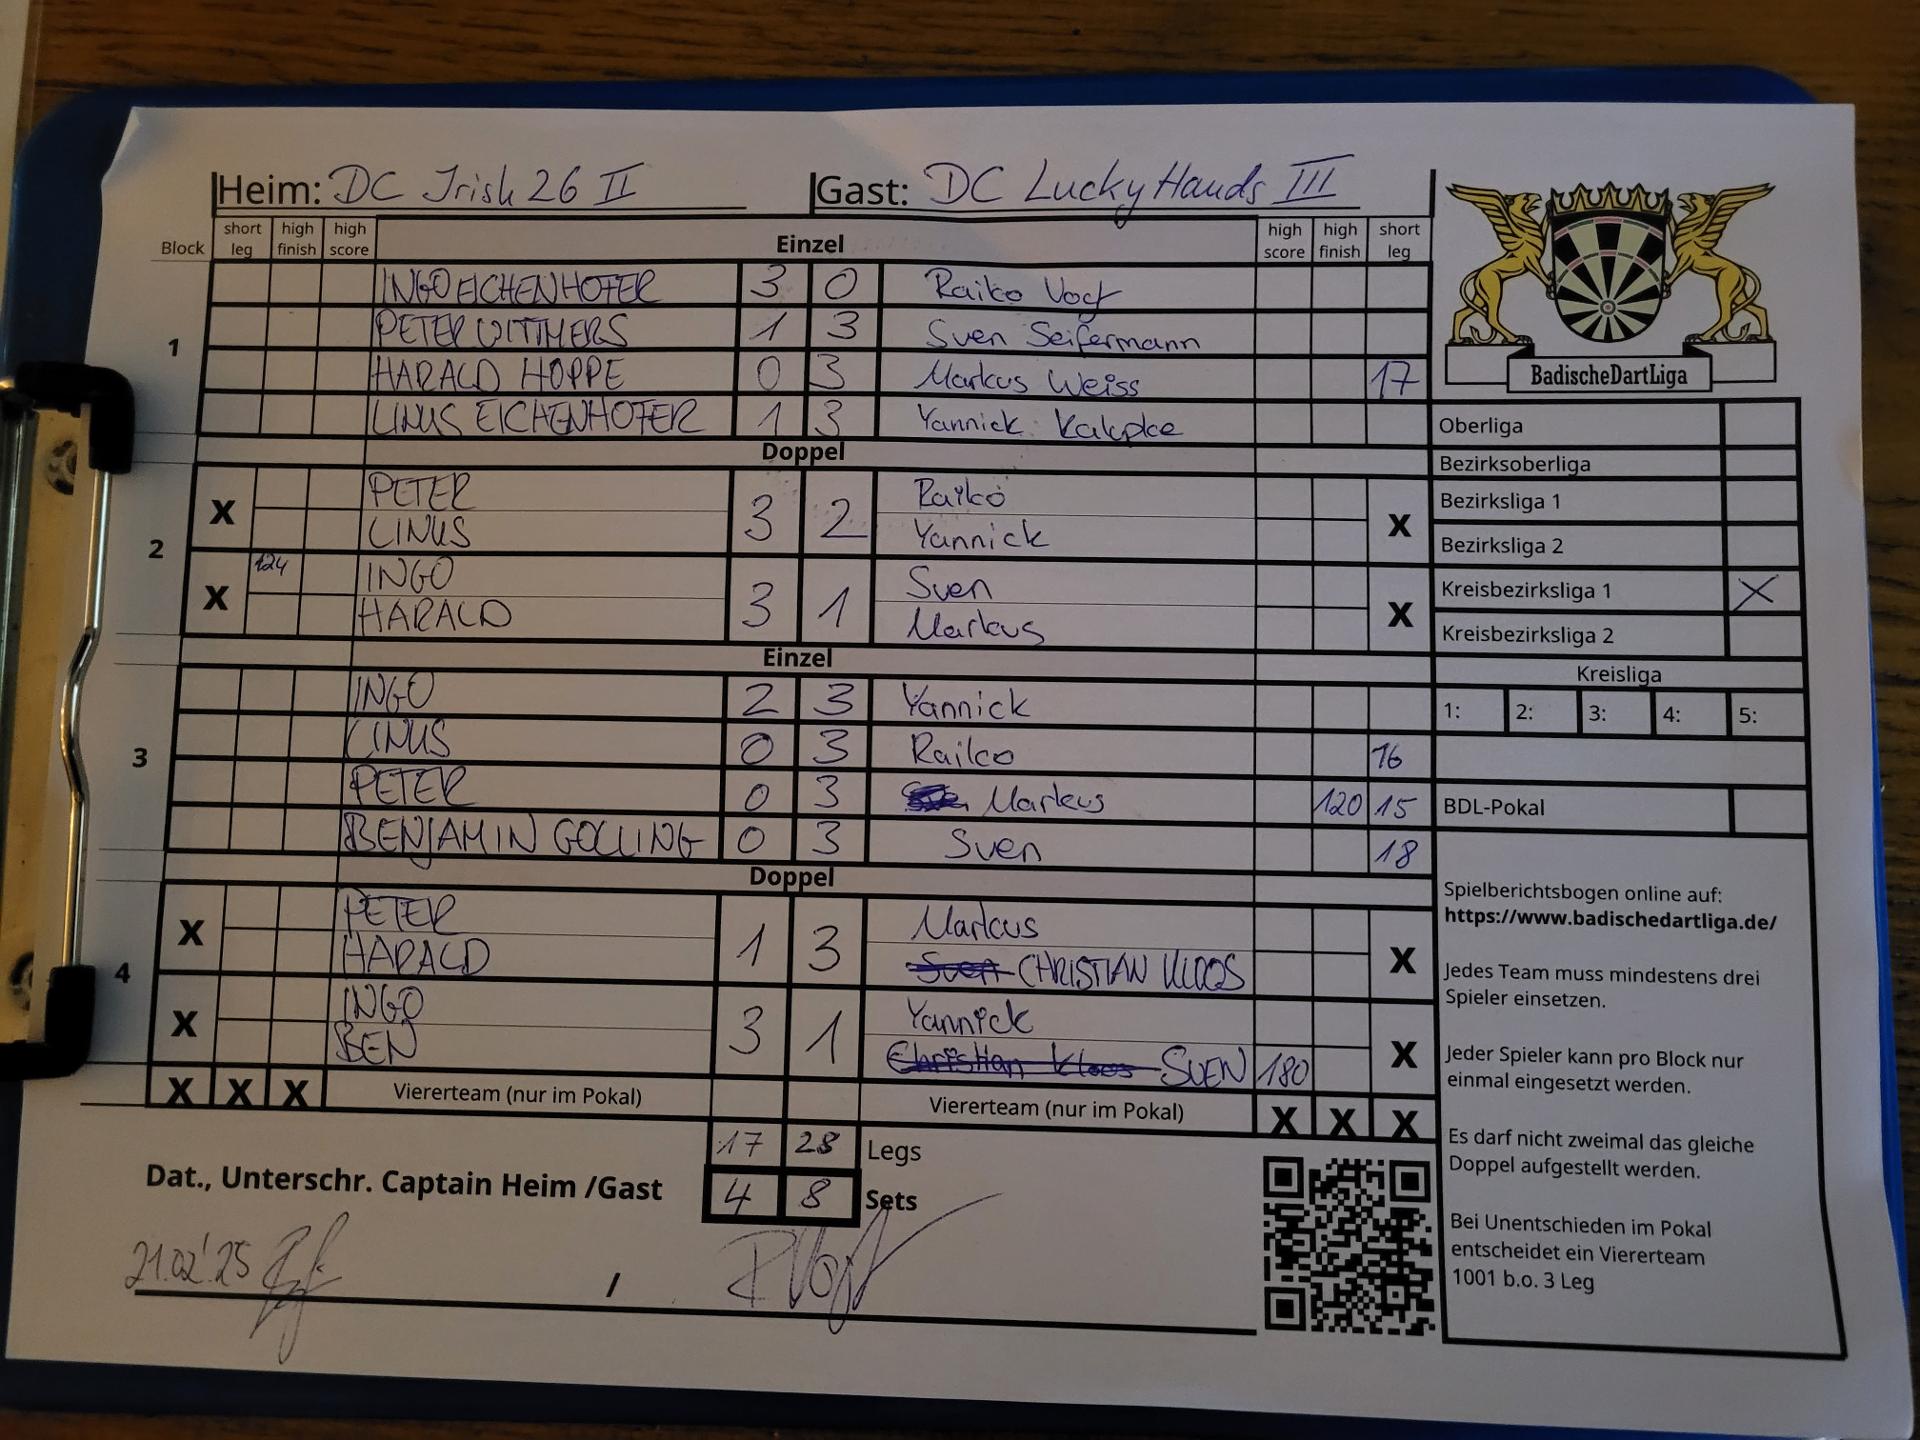 Heim: DC Irish 26 II Gast: DC Lucky Hands III
Block short leg high finish high score Einzel high score high finish short leg
1
INGO EICHENHOFER 3 0 Raiko Vogt
PETER WITTMERS 1 3 Sven Seifermann
HARALD HOPPE 0 3 Markus Weiss 17
LINUS EICHENHOFER 1 3 Yannick Kalupke
Doppel
2
X PETER 3 2 Raiko X
LINUS Yannick
X 124 INGO 3 1 Sven X
HARALD Markus
Einzel
3
INGO 2 3 Yannick
LINUS 0 3 Raiko 16
PETER 0 3 Markus 120 15
BENJAMIN GOLLING 0 3 Sven 18
Doppel
4
X PETER 1 3 Markus X
HARALD Sven CHRISTIAN KLOOS
X INGO 3 1 Yannick X
BEN Christian Kloos SVEN 180
X X X Viererteam (nur im Pokal) Viererteam (nur im Pokal) X X X
17 28 Legs
Dat., Unterschr. Captain Heim /Gast 4 8 Sets
21.02.'25 / R Vogt
BadischeDartLiga
Oberliga
Bezirksoberliga
Bezirksliga 1
Bezirksliga 2
Kreisbezirksliga 1 X
Kreisbezirksliga 2
Kreisliga
1: 2: 3: 4: 5:
BDL-Pokal
Spielberichtsbogen online auf:
https://www.badischedartliga.de/
Jedes Team muss mindestens drei
Spieler einsetzen.
Jeder Spieler kann pro Block nur
einmal eingesetzt werden.
Es darf nicht zweimal das gleiche
Doppel aufgestellt werden.
Bei Unentschieden im Pokal
entscheidet ein Viererteam
1001 b.o. 3 Leg